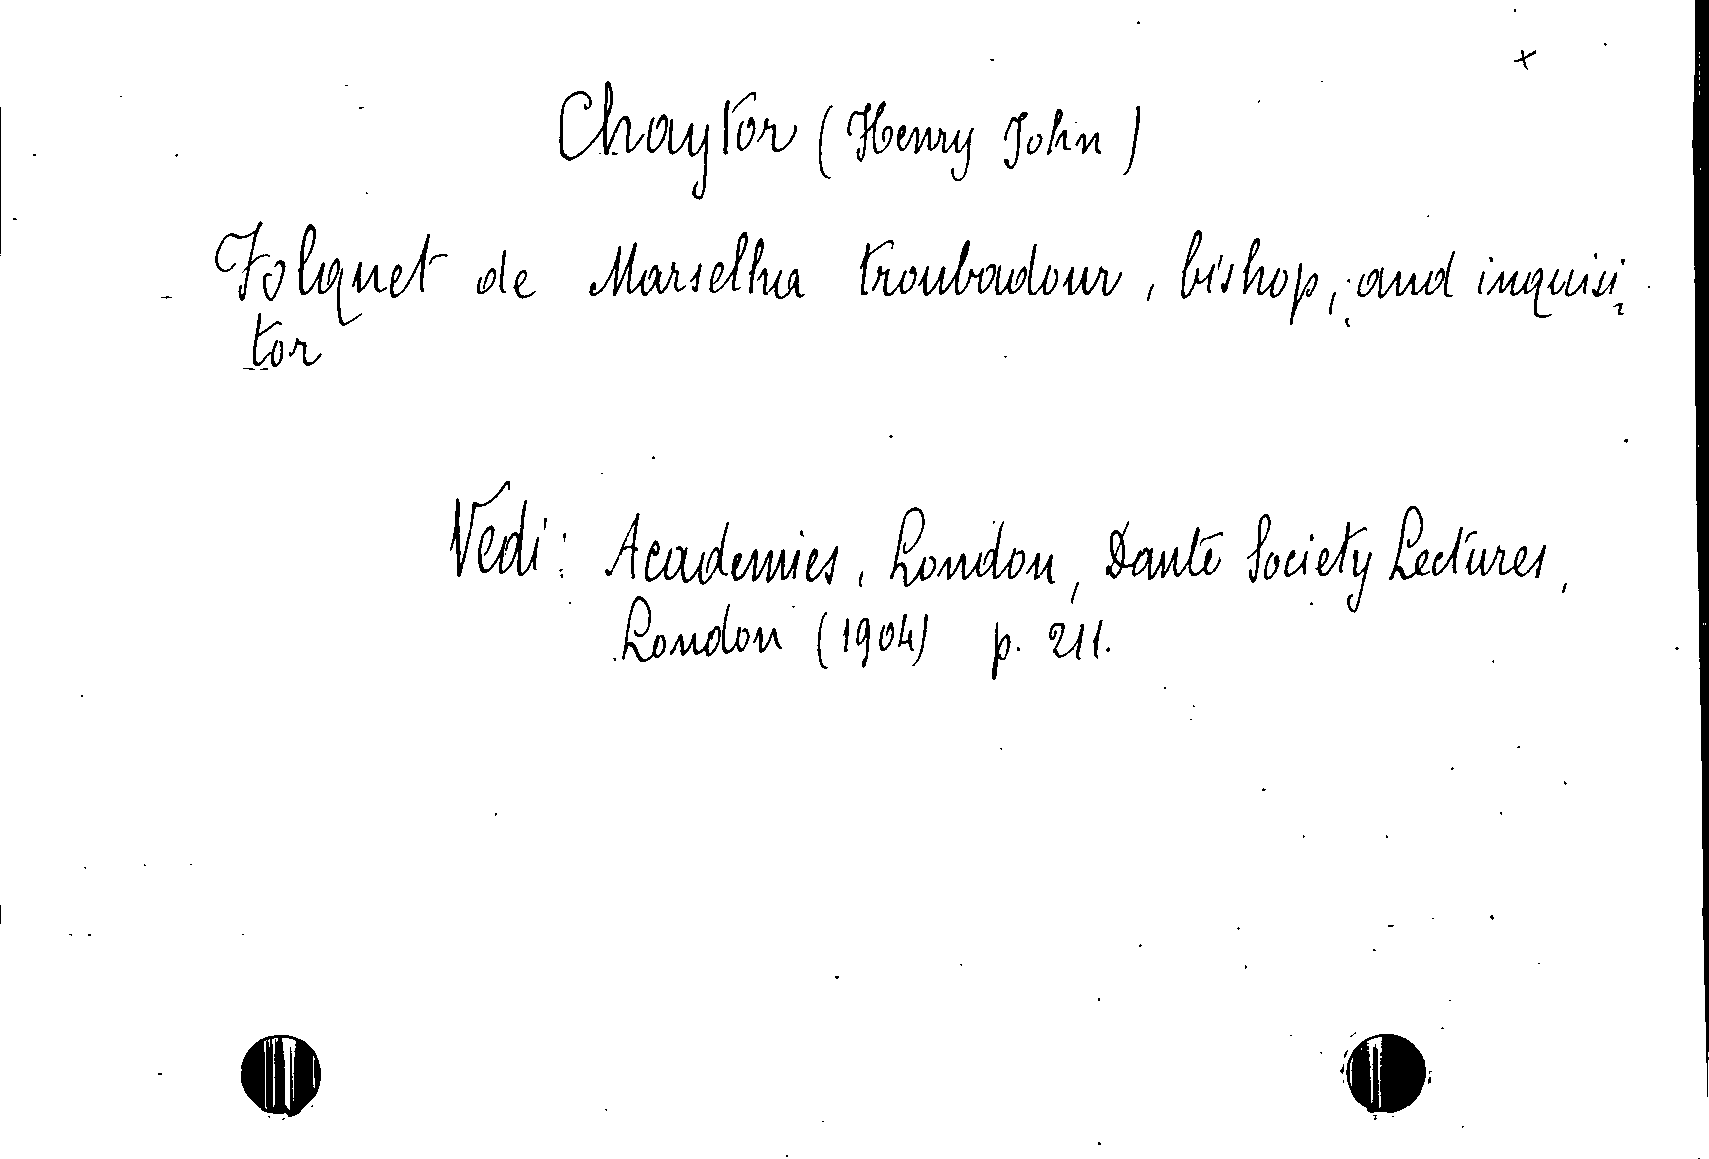 x
Chaytor (Henry John)
Folquet de Marselha troubadour, bishop, and inquisi
tor
Vedi: Academies, London, Dante Society Lectures,
London (1904) p. 211.